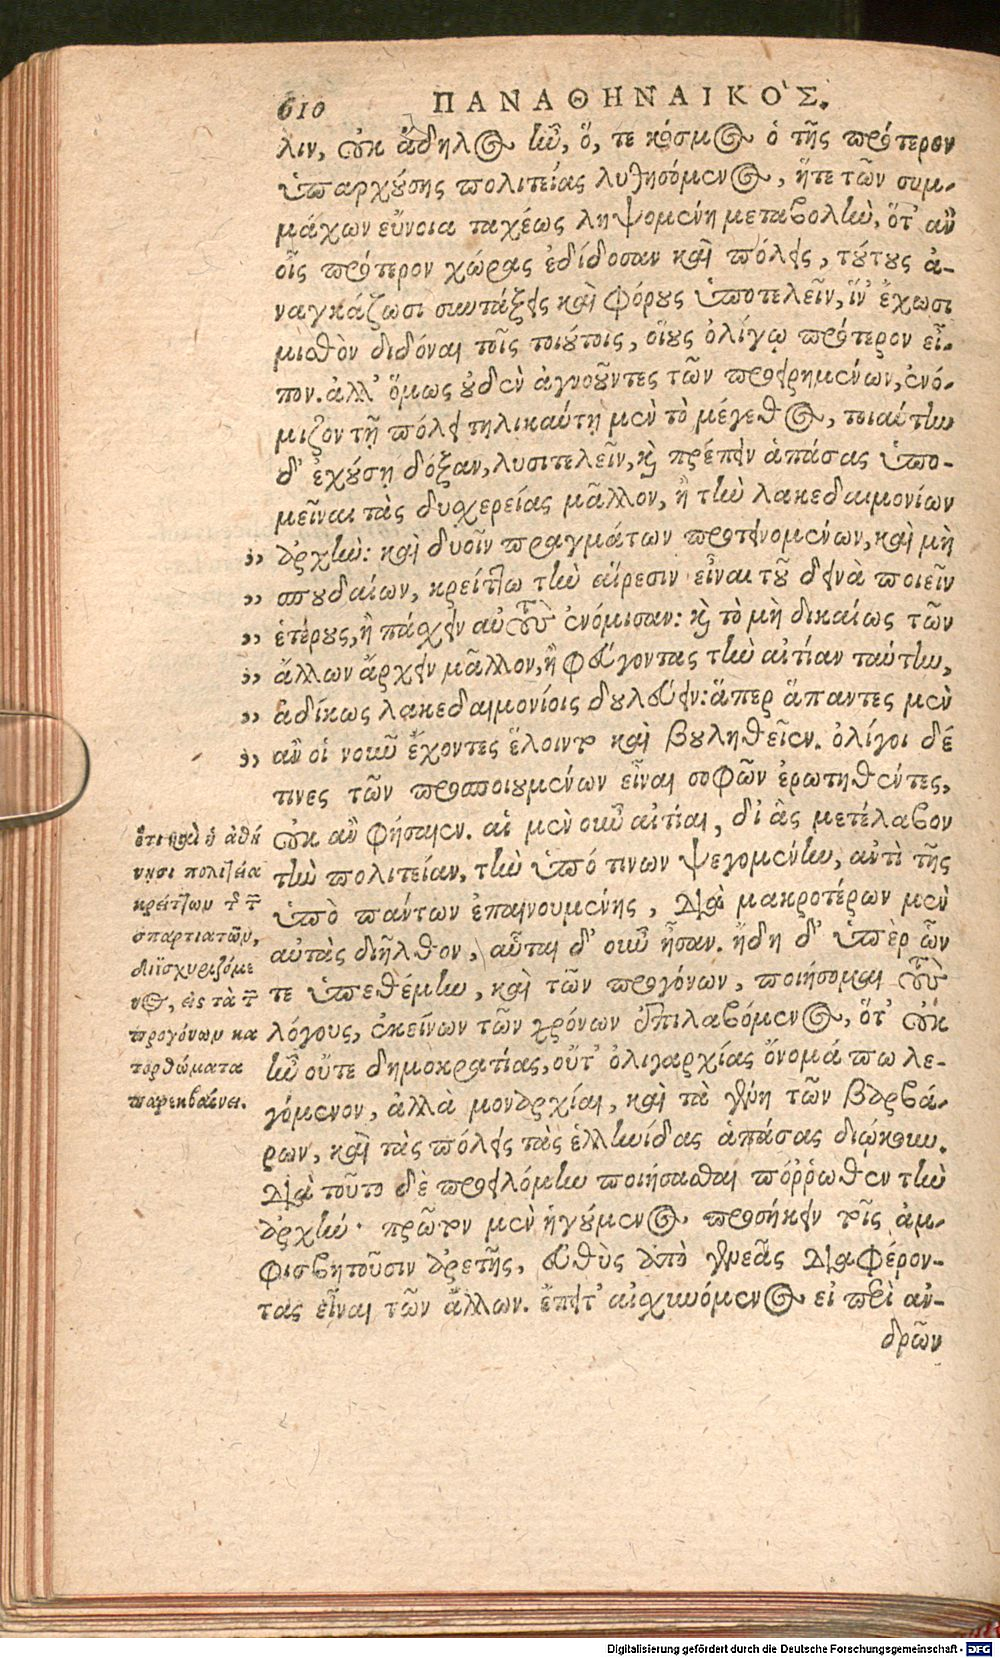 610 ΠΑΝΑΘΗΝΑΙΚΟΣ.
λιν, οὐκ ἄδηλος ἦν, ὅ, τε κόσμος ὁ τῆς πρότερον
ὑπαρχούσης πολιτείας λυθησόμενος, ἥτε τῶν συμ-
μάχων εὔνοια ταχέως ληψομένη μεταβολὴν, ὅτ' ἂν
οἷς πρότερον χώρας ἐδίδοσαν καὶ πόλεις, τούτους ἀ-
ναγκάζωσι συντάξεις καὶ φόρους ὑποτελεῖν, ἵν' ἔχωσι
μισθὸν διδόναι τοῖς τοιούτοις, οἵους ὀλίγῳ πρότερον εἶ-
πον. ἀλλ' ὅμως οὐδὲν ἀγνοοῦντες τῶν προειρημένων, ἐνό-
μιζον τῇ πόλει τηλικαύτῃ μὲν τὸ μέγεθος, τοιαύτην
δ' ἐχούσῃ δόξαν, λυσιτελεῖν, καὶ πρέπειν ἁπάσας ὑπο-
μεῖναι τὰς δυσχερείας μᾶλλον, ἢ τὴν λακεδαιμονίων
,, ἀρχὴν: καὶ δυοῖν πραγμάτων προτεινομένων, καὶ μὴ
,, σπουδαίων, κρείττω τὴν αἵρεσιν εἶναι τοῦ δεινὰ ποιεῖν
,, ἑτέρους, ἢ πάσχειν αὐτοὺς ἐνόμισαν: καὶ τὸ μὴ δικαίως τῶν
,, ἄλλων ἄρχειν μᾶλλον, ἢ φεύγοντας τὴν αἰτίαν ταύτην,
,, ἀδίκως λακεδαιμονίοις δουλεύειν: ἅπερ ἅπαντες μὲν
,, ἂν οἱ νοῦν ἔχοντες ἕλοιντο καὶ βουληθεῖεν. ὀλίγοι δέ
τινες τῶν προσποιουμένων εἶναι σοφῶν ἐρωτηθέντες,
οὐκ ἂν φήσαιεν. αἱ μὲν οὖν αἰτίαι, δι' ἃς μετέλαβον
τὴν πολιτείαν, τὴν ὑπό τινων ψεγομένην, ἀντὶ τῆς
ὑπὸ πάντων ἐπαινουμένης, διὰ μακροτέρων μὲν
αὐτὰς διῆλθον, αὗται δ' οὖν ἦσαν. ἤδη δ' ὑπὲρ ὧν
τε ὑπεθέμην, καὶ τῶν προγόνων, ποιήσομαι τοὺς
λόγους, ἐκείνων τῶν χρόνων ἐπιλαβόμενος, ὅτ' οὐκ
ἦν οὔτε δημοκρατίας, οὔτ' ὀλιγαρχίας ὄνομά πω λε-
γόμενον, ἀλλὰ μοναρχίαι, καὶ τὰ γένη τῶν βαρβά-
ρων, καὶ τὰς πόλεις τὰς ἑλληνίδας ἁπάσας διῴκουν.
διὰ τοῦτο δὲ προειλόμην ποιήσασθαι πόῤῥωθεν τὴν
ἀρχήν· πρῶτον μὲν ἡγούμενος προσήκειν τοῖς ἀμ-
φισβητοῦσιν ἀρετῆς, εὐθὺς ἀπὸ γενεᾶς διαφέρον-
τας εἶναι τῶν ἄλλων. ἔπειτ' αἰσχυνόμενος εἰ περὶ ἀν-
δρῶν
ὅτι καὶ ἡ ἀθή
νησι πολιτεία
κρείττων τῆς τῶν
σπαρτιατῶν,
διϊσχυριζόμε
νος, εἰς τὰ τῶν
προγόνων κα
τορθώματα
παρεκβαίνει.
Digitalisierung gefördert durch die Deutsche Forschungsgemeinschaft - DFG